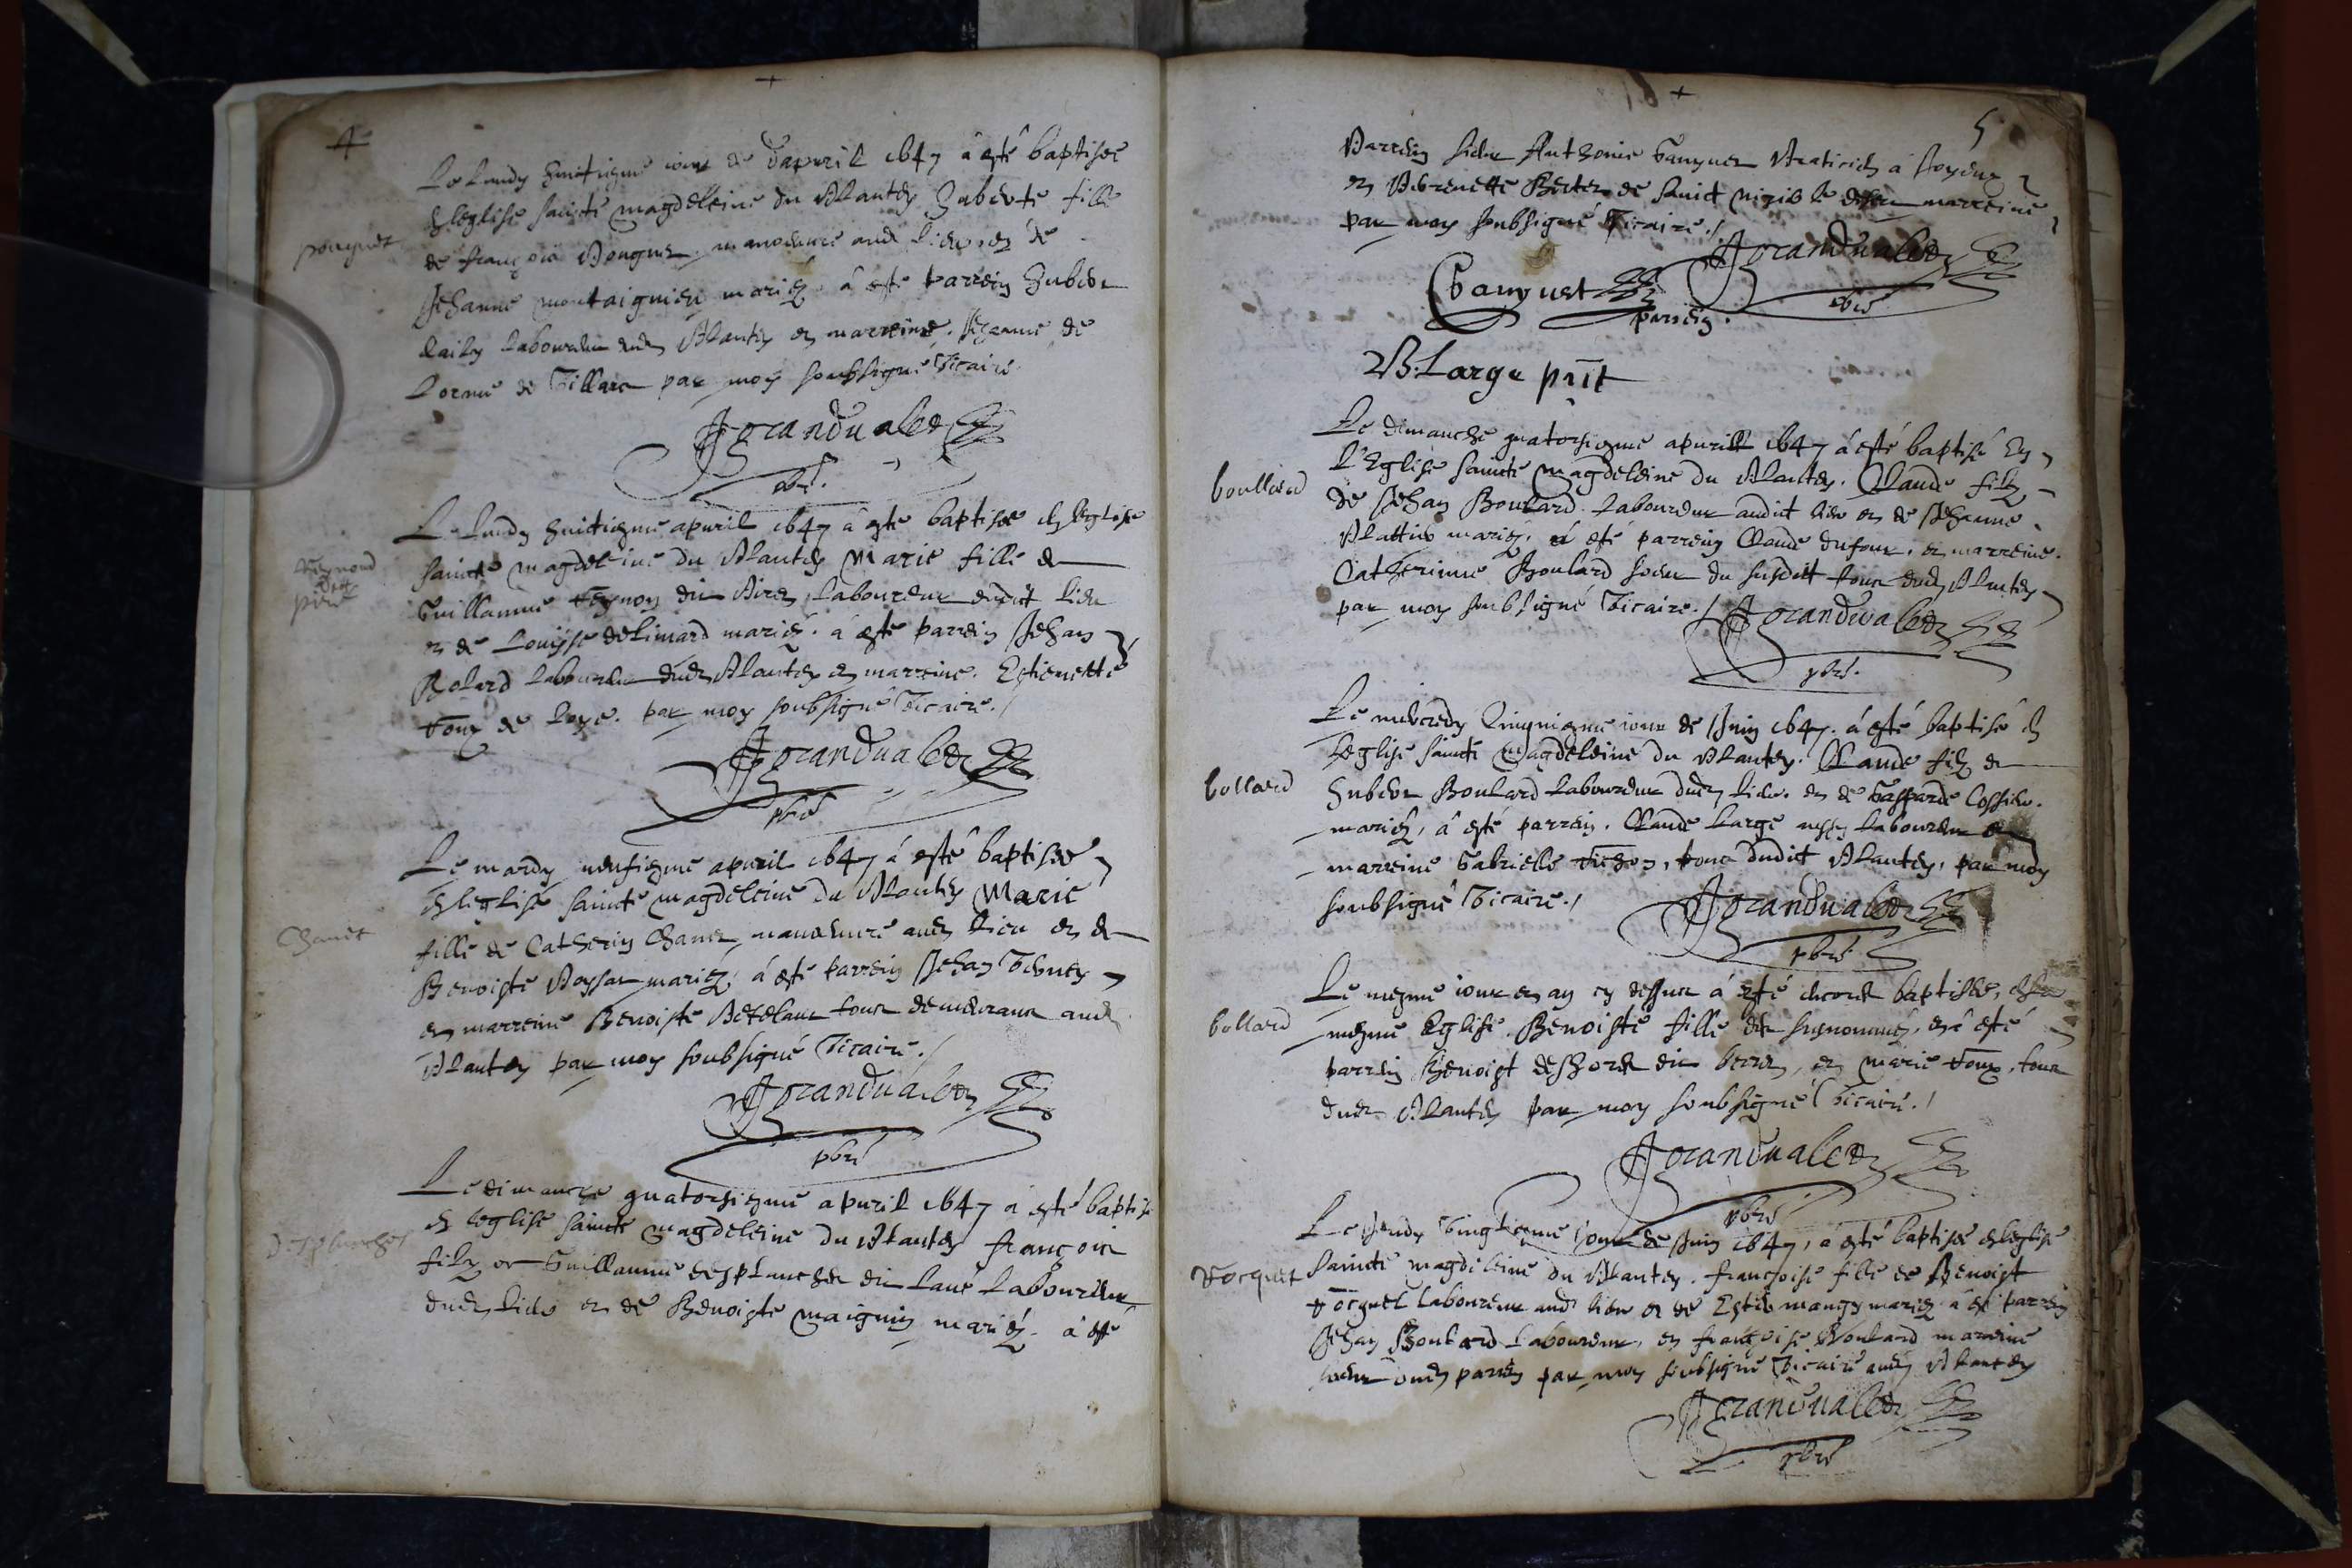 4
Le Lundy huictiesme jour de d'apuril 1647 a esté baptisée
en leglise saincte magdeleine du Plantey huberte fille
pouguet
de françois Pouguet manoeuvre aud lieu et de
Jehanne montaignier mariéz. a esté parrein hubert
laboureur dud Plantey et marreine. Jehanne de
de Villars par moy soubsigné vicaire
Jgranduallet
pbre.
Le Lundy huictiesme apuril 1647 a este baptisée en leglise
saincte magdeleine du Plantey Marie fille de
Guillaume dit laboureur dudict lieu
et de Louyse mariéz. a esté parrein Jehan
Bolard laboureur dud Plantey et marreine. Estiennette
de Loye. par moy soubsigné vicaire./
Jgranduallet
pbre
Le mardy neufiesme apuril 1647 a esté baptisée
en leglise saincte magdeleine du Plantey Marie
Chanet
fille de Catherin Chanet manoeuvre aud lieu et de
Benoiste mariéz, a esté parrein Jehan
et marreine Benoiste tous demeurans aud
Plantey par moy soubsigné vicaire./
Jgranduallet
pbre
Le dimanche quatorsiesme apuril 1647 a esté baptisé
en leglise saincte magdeleine du Plantey françois
desplanches
filz de Guillaume desplanches dit Lané laboureur
dud lieu et de Benoiste maignin mariéz. a esté
5
Parrein sieur Anthoine Ganguet Praticien a
et Pierrenette de Sainct marreine
par moy soubsigné Vicaire./
Jgranduallet
pbre
Ganguet
parrein.
B. Large pnt
Le dimanche quatorsiesme apurill 1647 a esté baptisé En
L'Eglise saincte Magdeleine du Plantey. Claude filz
boullard
de Jehan Boulard. Laboureur audict lieu et de Jehanne
mariéz. a esté parrein Claude dufour. et marreine.
Catherinne Boulard soeur du susdict tous dud Plantey
par moy soubsigné Vicaire./
Jgranduallet
pbre.
Le mercredy Cinquiesme jour de Juin 1647. a esté baptisé en
leglise saincte Magdeleine du Plantey. Claude filz de
bollard
hubert Boulard laboureur dud lieu. et de Gasparde Cossieu.
mariéz, a esté parrein. Claude Large aussy laboureur et
marreine Gabrielle tous dudict Plantey, par moy
soubsigné Vicaire./
Jgranduallet
pbre
Le mesme jour et an cy dessus a esté encore baptisée, en la
bollard
mesme Eglise. Benoiste fille des susnommés, et a esté
parrein Benoist dit et Marie tous
dud Plantey par moy soubsigné Vicaire./
Jgranduallet
pbre
Le Jeudy Vingtiesme jour de Juin 1647, a esté baptisée en leglise
Vocquet
saincte magdeleine du Plantey. françoise fille de Benoist
Vocquet laboureur aud lieu et de mariéz a esté parrein
Jehan Boulard laboureur, et françoise Boulard marreine
soeur dud parrein par moy soubsigné Vicaire aud Plantey
Jgranduallet
pbre